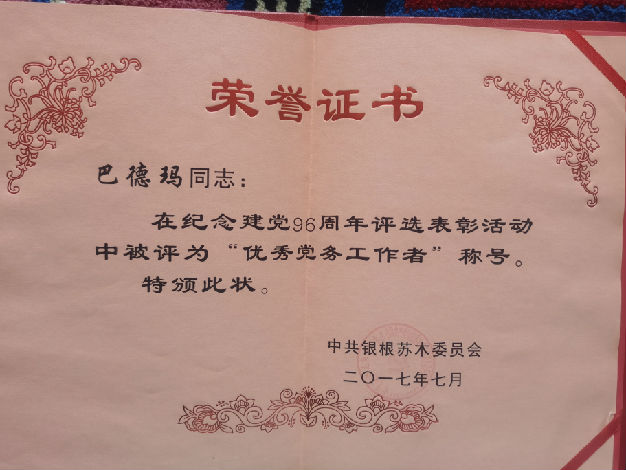 荣誉证书
巴德玛同志：
在纪念建党96周年评选表彰活动
中被评为“优秀党务工作者”称号。
特颁此状。
中共银根苏木委员会
二〇一七年七月